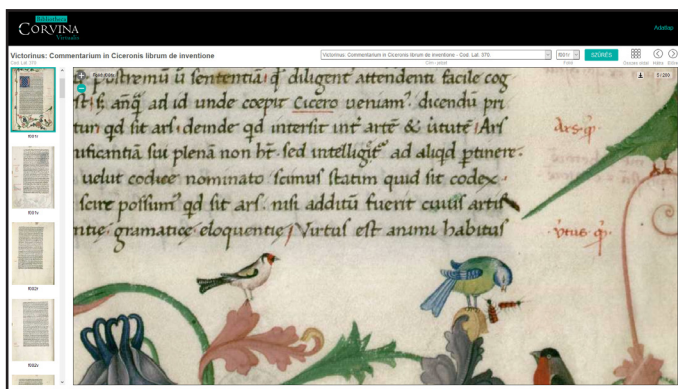 Bibliotheca
CORVINA
Virtualis
Adatlap
Victorinus: Commentarium in Ciceronis librum de inventione
Cod. Lat. 370.
Victorinus: Commentarium in Ciceronis librum de inventione - Cod. Lat. 370.
f001r
SZŰRÉS
Cím - jelzet
Fólió
Összes oldal
Hátra
Előre
f001r
f001v
f002r
f002v
5 / 209
postremū ū sententia q̄ diligent attendenti facile cog
ad id unde coepit Cicero veniam. dicendū pri
tum qd sit ars. deinde qd intersit int artē & ututē. Ars
nificantiā sui plenā non ht. sed intelligit ad aliqd ptinere.
uelut codice nominato scimus statim quid sit codex.
scire possum qd sit ars. nisi additū fuerit cuius artis
ntie gramatice eloquentie. Virtus est animi habitus
Ars. q.
Vtus. q.